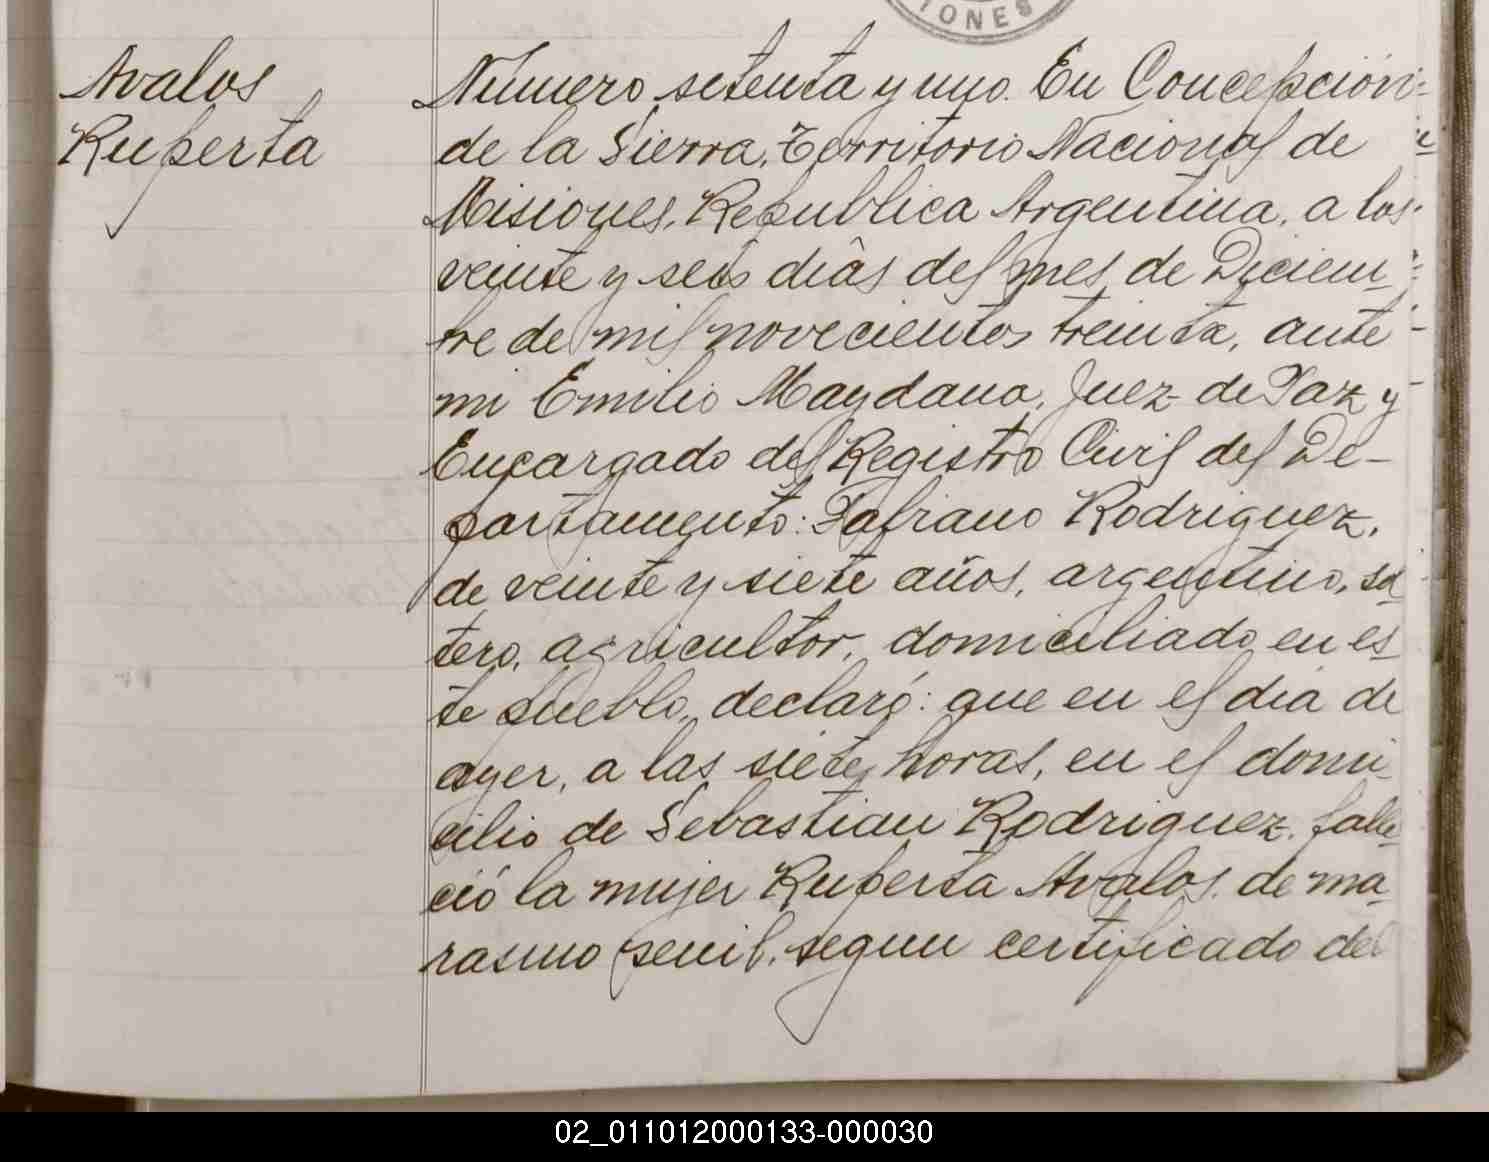 IONES
Avalos
Ruperta
Número setenta y uno. En Concepción
de la Sierra, Territorio Nacional de
Misiones, Republica Argentina, a los
veinte y seis dias del mes de Diciem
bre de mil novecientos treinta, ante
mi Emilio Maydana, Juez de Paz y
Encargado del Registro Civil del De-
partamento: Rodriguez,
de veinte y siete años, argentino, sol
tero, agricultor, domiciliado en es
te pueblo, declaró: que en el dia de
ayer, a las siete horas, en el domi
cilio de Sebastian Rodriguez, falle
ció la mujer Ruperta Avalos, de ma
rasmo senil, segun certificado del
02_011012000133-000030